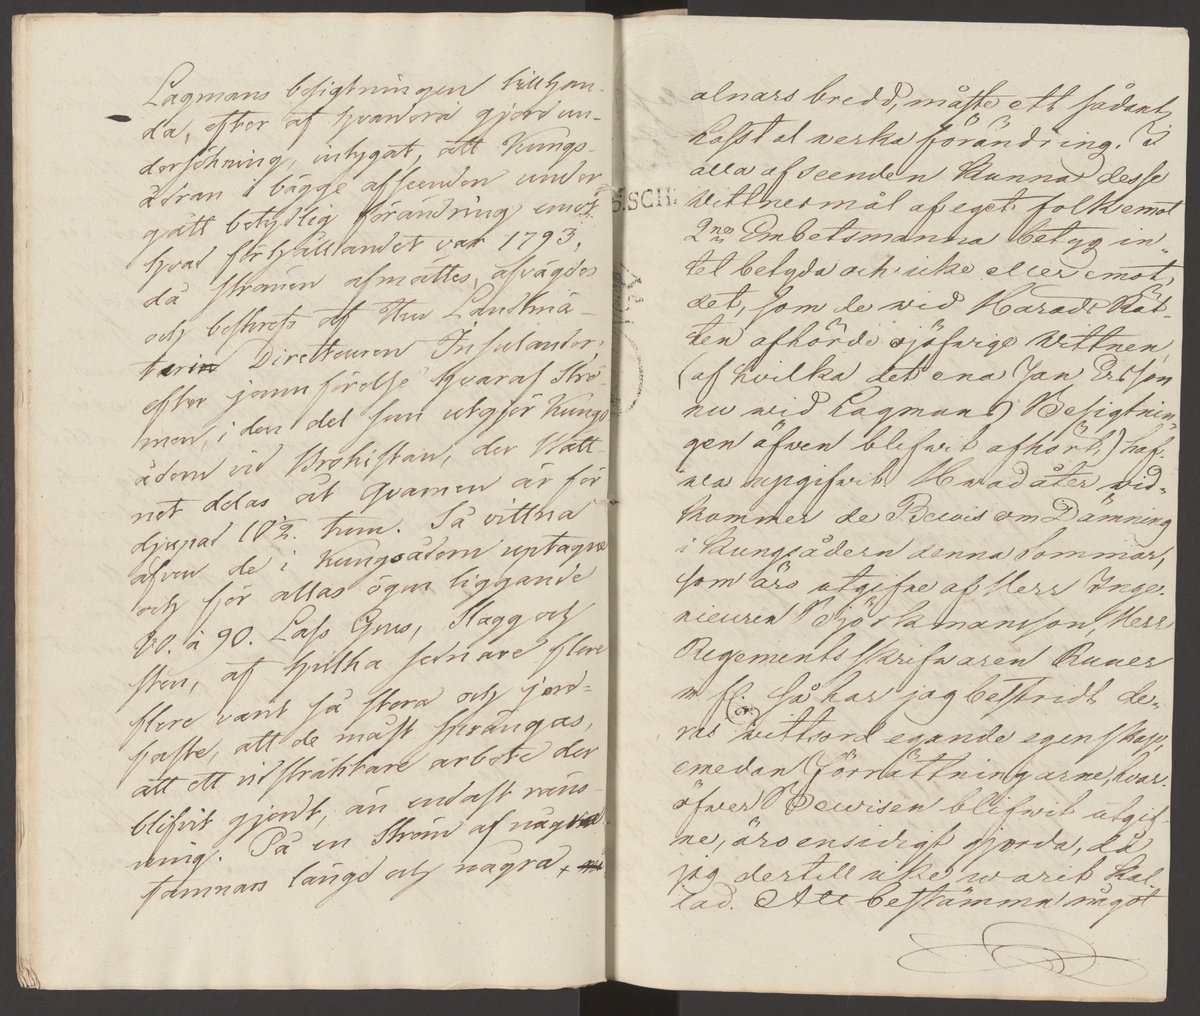 Lagmans besigtningen tillhan-
da, efter af hvardera gjord un-
dersökning, intygat, att Kungs-
ådran i bägge afseenden under
gått betydlig förändring emot
hvad förhållandet var 1793,
då strömen afmättes, afvägdes
och beskrefs af Herr Landtmä-
teri Directeuren Insulander,
efter jemnförelse hvaraf Strö-
men, i den del som utgör Kungs
ådern vid Brokistan, der Watt-
net delas åt Qvarnen är för
djupad 10 1/2 tum. Så vittna
äfven de i Kungsådern uptagne
och för allas ögon liggande
80. à 90. Lass Grus, Slagg och
sten, af hvilka sednare flere
flere varit så stora och jord-
faste, att de måst sprängas,
att ett vidsträktare arbete der
blifvit gjordt, än endast räns-
ning. På en Ström af några
famnars längd och några
alnars bredd, måste ett sådant
lasstal werka förändring. I
alla afseenden kunna desse
vittnesmål af eget folk emot
2ne Embetsmanna betyg in-
tet betyda och icke eller emot
det, som de wid Härads Rät-
ten afhörde ojäfvige vittnen,
(af hvilka det ena Jan Ersson
nu wid Lagmans Besigtnin-
gen äfven blifwit afhört,) haf-
wa upgifwit. Hvad åter wid-
kommer de Bewis om Dämning
i kungsådern denna sommar,
som äro utgifne af Herr Inge-
nieuren Björkmansson, Herr
Regements skrifwaren Ruuer
m fl. så har jag bestridt de-
ras vittsord egande egenskap,
emedan förrättningarne, hvar-
öfwer Bewisen blifwit utgif-
ne, äro ensidigt gjorda, då
jag dertill icke warit kal-
lad. Att bestämma något